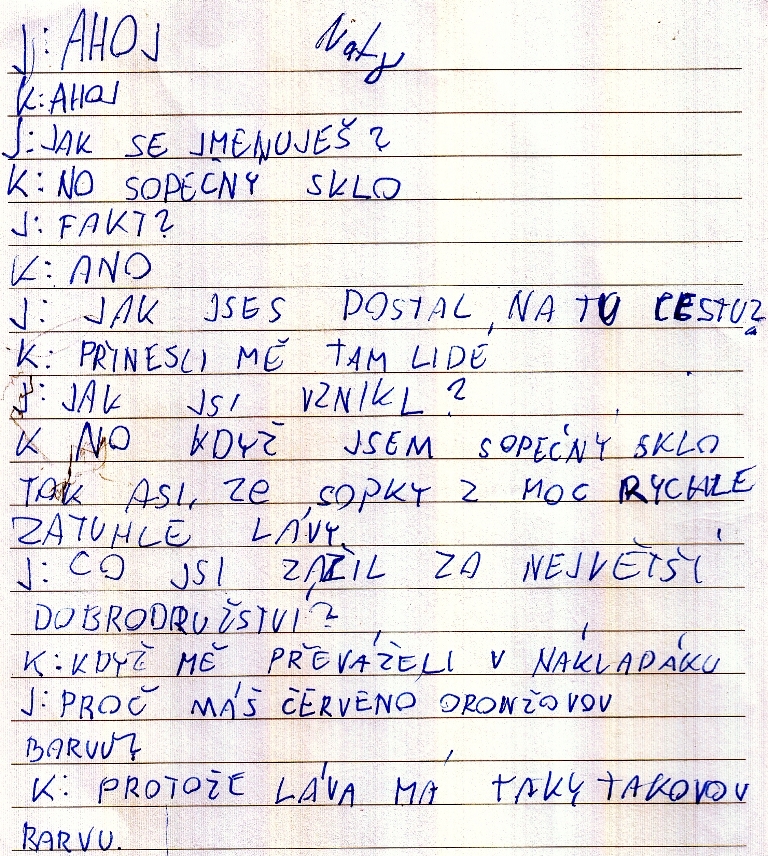 J: AHOJ Naty
K: AHOJ
J: JAK SE JMENUJEŠ?
K: NO SOPEČNÝ SKLO
J: FAKT?
K: ANO
J: JAK JSES DOSTAL NA TU CESTU?
K: PŘINESLI MĚ TAM LIDÉ
J: JAK JSI VZNIKL?
K NO KDYŽ JSEM SOPEČNÝ SKLO
TAK ASI, ZE SOPKY Z MOC RYCHLE
ZATUHLE LÁVY.
J: CO JSI ZAŽIL ZA NEJVĚTŠÍ
DOBRODRUŽSTVÍ?
K: KDYŽ MĚ PŘEVÁŽELI V NÁKLADÁKU
J: PROČ MÁŠ ČERVENO ORONŽOVOU
BARVU?
K: PROTOŽE LÁVA MÁ TAKY TAKOVOU
BARVU.